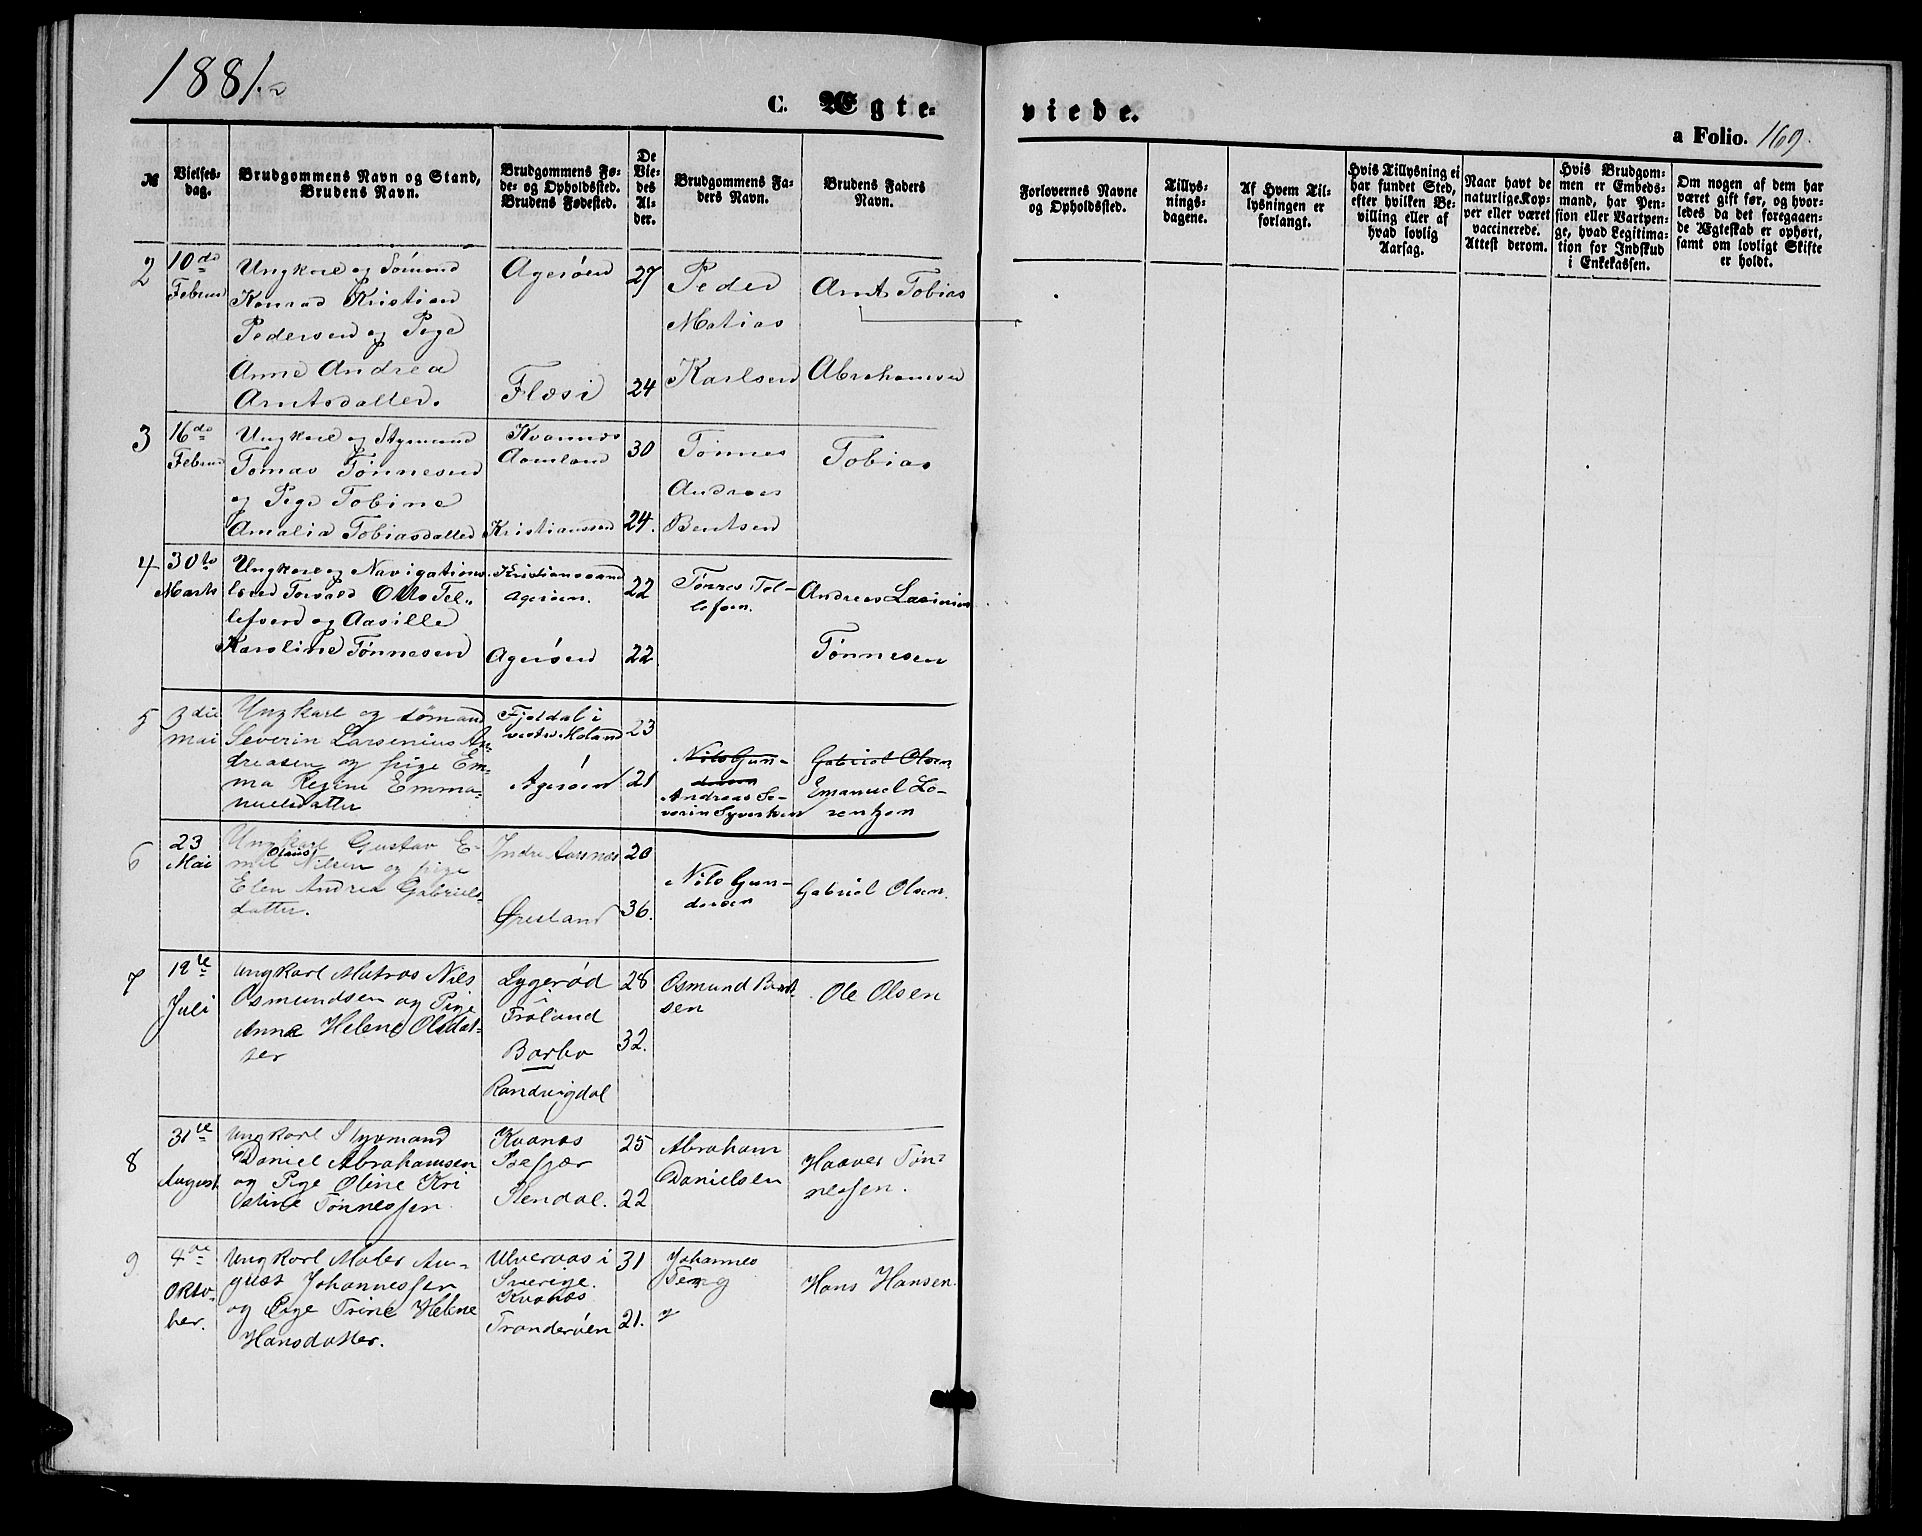 1881.
C. Ægte-
viede.
a Folio. 169.
№
Vielses-
dag.
Brudgommens Navn og Stand,
Brudens Navn.
Brudgommens Fø-
de- og Opholdssted.
Brudens Fødested.
De
Vie-
des
Al-
der.
Brudgommens Fa-
ders Navn.
Brudens Faders
Navn.
Forlovernes Navne
og Opholdssted.
Tillys-
nings-
dagene.
Af Hvem Til-
lysningen er
forlangt.
Hvis Tillysning ei
har fundet Sted,
efter hvilken Be-
villing eller af
hvad lovlig
Aarsag.
Naar havt de
naturlige Kop-
per eller været
vaccinerede.
Attest derom.
Hvis Brudgom-
men er Embeds-
mand, har Pen-
sion eller Vartpen-
ge, hvad Legitima-
tion for Indskud
i Enkekassen.
Om nogen af dem har
været gift før, og hvor-
ledes da det foregaaen-
de Ægteskab er ophørt,
samt om lovligt Skifte
er holdt.
2
10de
Februar
Ungkarl og Sømand
Konrad Kristian
Pedersen og Pige
Anne Andrea
Arntsdatter.
Agerøen
Flæsi
27
24
Peder
Matias
Karlsen
Arnt Tobias
Abrahamsen
3
16de
Februar
Ungkarl og Styrmand
Tomas Tønnesen
og Pige Tobine
Amalia Tobiasdatter
Kvannes
Aamland
Kristianssand
30
24.
Tønnes
Andreas
Bentsen
Tobias
4
30te
Marts
Ungkarl og Navigations-
lærer Torvald Otto Tel-
lefsen og Aasille
Karoline Tønnesen
Kristianssand
Agerøen.
Agerøen
22
22
Tønnes Tel-
lefsen.
Andreas Lavinius
Tønnesen
5
3die
mai
Ungkarl og sømand
Severin Larsenius An-
dreasen og pige Em-
ma Regine Emma-
nuelsdatter
Fjeldal i
vestre Moland
Agerøen
23
21
Nils Gun-
dersen
Andreas Se-
verin Syvertsen
Gabriel Olsen
Emanuel Lo-
rentzen
6
23
Mai
Ungkarl Gustav E-
mil Olaus Nilsen og pige
Elen Andrea Gabriels-
datter.
Indre Aarsnes
Øresland
20
36.
Nils Gun-
dersen
Gabriel Olsen.
7
12te
Juli
Ungkarl Matros Nils
Osmundsen og Pige
Anne Helene Olsdat-
ter
Lygerød
Frøland
Barbo
Randvigdal
28
32.
Osmund Bent-
sen
Ole Olsen
8
31te
August
Ungkarl Styrmand
Daniel Abrahamsen
og Pige Oline Kri
stine Tønnessen
Kvanes
Stendal.
25
22
Abraham
Danielsen
Haaver Tøn-
nessen.
9
4de
Okto-
ber.
Ungkarl Maler Au-
gust Johannessen
og Pige Trine Helene
Hansdatter.
Ulveraas i
Sverige.
Kvanes
Tranderøen
31
21.
Johannes
Hans Hansen